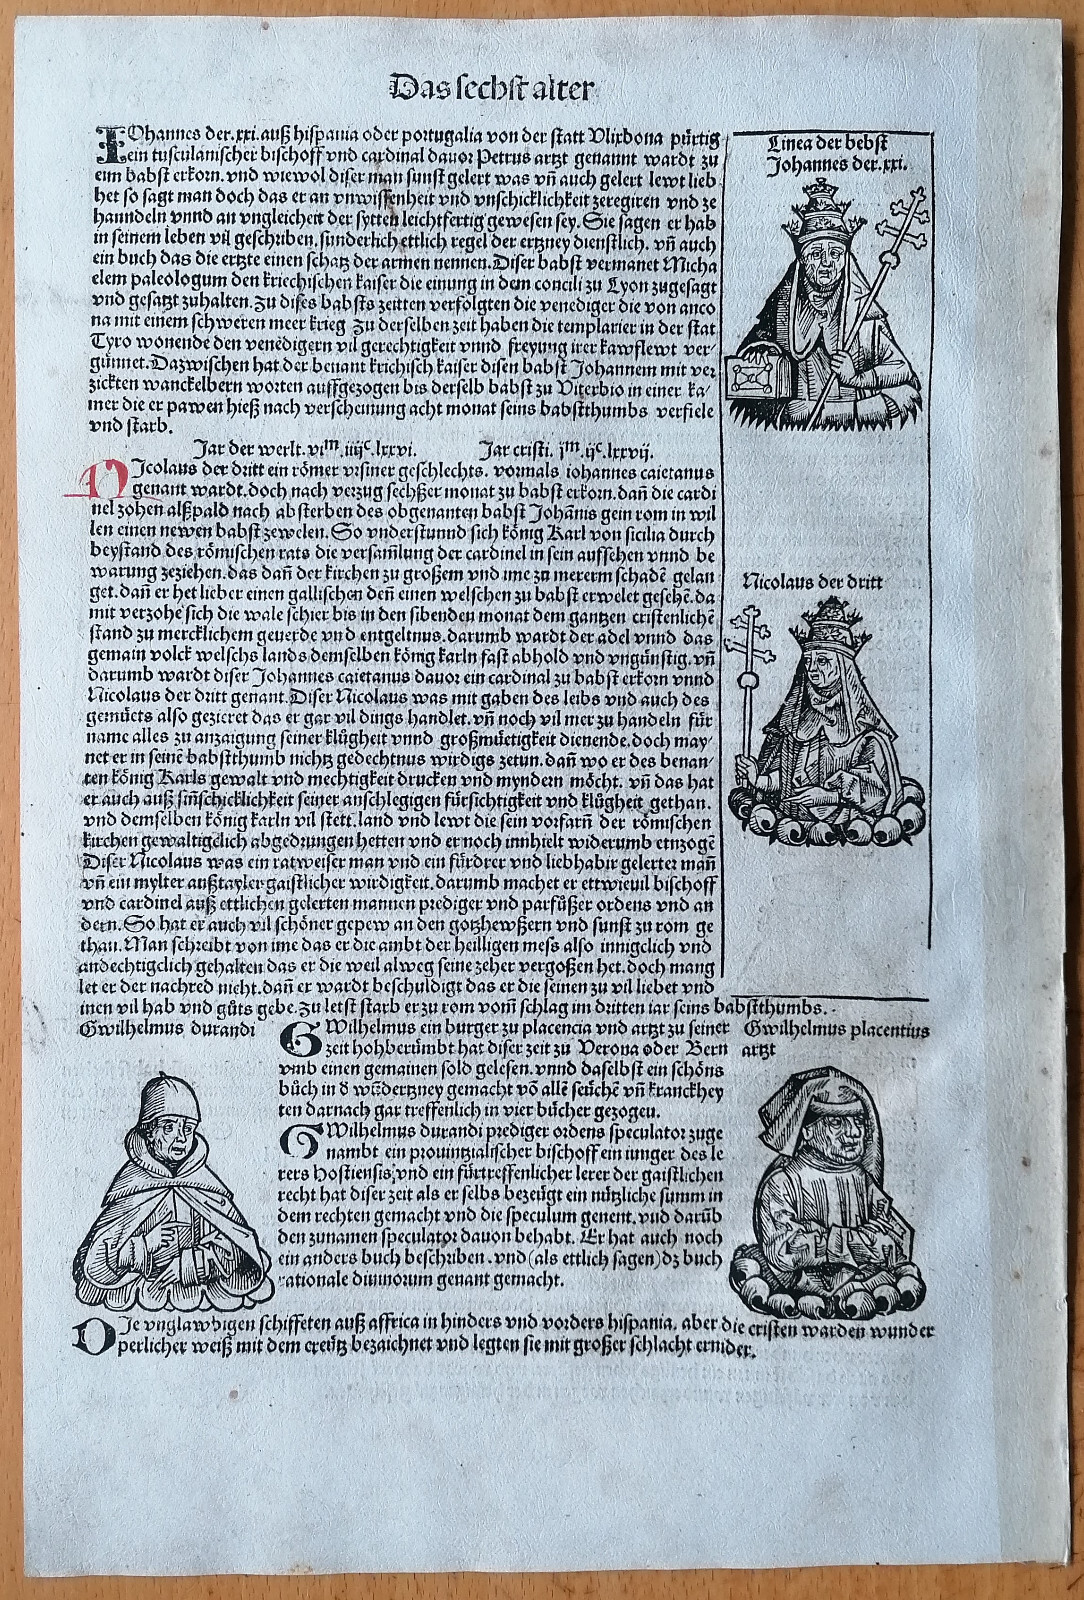 Das sechst alter
IOhannes der.xxi.auß hispania oder portugalia von der statt Vlixbona pürtig
ein tusculanischer bischoff vnd cardinal dauor Petrus artzt genannt wardt zu
eim babst erkorn.vnd wiewol diser man sunst gelert was vn̄ auch gelert lewt lieb
het so sagt man doch das er an vnwissenheit vnd vnschicklichkeit zeregiren vnd ze
hanndeln vnnd an vngleicheit der sytten leichtfertig gewesen sey. Sie sagen er hab
in seinem leben vil geschriben.sunderlich ettlich regel der ertzney dienstlich. vn̄ auch
ein buch das die ertzte einen schatz der armen nennen.Diser babst vermanet Micha
elem paleologum den kriechischen kaiser die einung in dem concili zu Lyon zugesagt
vnd gesatzt zuhalten.Zu dises babsts zeitten verfolgten die venediger die von anco
na mit einem schweren meer krieg Zu derselben zeit haben die templarier in der stat
Tyro wonende den venedigern vil gerechtigkeit vnnd freyung irer kawflewt ver-
günnet.Dazwischen hat der benant krichisch kaiser disen babst Johannem mit ver
zickten wanckelbern worten auffgezogen bis derselb babst zu Viterbio in einer ka-
mer die er pawen hieß nach verscheinung acht monat seins babstthumbs verfiele
vnd starb.
Linea der bebst
Johannes der.xxi.
Jar der werlt.vi^m.iiij^c.lxxvi. Jar cristi.j^m.ij^c.lxxvij.
NIcolaus der dritt ein römer vrsiner geschlechts. vormals iohannes caietanus
genant wardt.doch nach verzug sechßer monat zu babst erkorn.dan̄ die cardi
nel zohen alßpald nach absterben des obgenanten babst Johānis gein rom in wil
len einen newen babst zewelen. So vnderstunnd sich könig Karl von sicilia durch
beystand des römischen rats die versam̄lung der cardinel in sein auffsehen vnnd be
warung zeziehen.das dan̄ der kirchen zu großem vnd ime zu mererm schadē gelan
get.dan̄ er het lieber einen gallischen den̄ einen welschen zu babst erwelet gesehē.da
mit verzohe sich die wale schier bis in den sibenden monat dem gantzen cristenlichē
stand zu mercklichem geuerde vnd entgeltnus.darumb wardt der adel vnnd das
gemain volck welschs lands demselben könig karln fast abhold vnd vngünstig.vn̄
darumb wardt diser Johannes caietanus dauor ein cardinal zu babst erkorn vnnd
Nicolaus der dritt genant.Diser Nicolaus was mit gaben des leibs vnd auch des
gemüets also gezieret das er gar vil dings handlet.vn̄ noch vil mer zu handeln für
name alles zu anzaigung seiner klůgheit vnnd großmüetigkeit dienende.doch may-
net er in seinē babstthumb nichtz gedechtnus wirdigs zetun.dan̄ wo er des benan-
ten könig Karls gewalt vnd mechtigkeit drucken vnd myndern möcht. vn̄ das hat
er auch auß sin̄schicklichkeit seiner anschlegigen fürsichtigkeit vnd klůgheit gethan.
vnd demselben könig karln vil stett.land vnd lewt die sein vorfarn̄ der römischen
kirchen gewaltigclich abgedrungen hetten vnd er noch innhielt widerumb entzogē
Diser Nicolaus was ein ratweiser man vnd ein fürdrer vnd liebhabir gelerter man̄
vn̄ ein mylter außtayler gaistlicher wirdigkeit.darumb machet er ettwieuil bischoff
vnd cardinel auß ettlichen gelerten mannen prediger vnd parfůßer ordens vnd an
dern.So hat er auch vil schöner gepew an den gotzhewßern vnd sunst zu rom ge
than.Man schreibt von ime das er die ambt der heilligen mess also innigclich vnd
andechtigclich gehalten das er die weil alweg seine zeher vergoßen het.doch mang
let er der nachred nicht.dan̄ er wardt beschuldigt das er die seinen zu vil liebet vnd
inen vil hab vnd gůts gebe.Zu letst starb er zu rom vom̄ schlag im dritten iar seins babstthumbs.
Nicolaus der dritt
Gwilhelmus durandi
GWilhelmus ein burger zu placencia vnd artzt zu seiner
zeit hohberümbt hat diser zeit zu Verona oder Bern
vmb einen gemainen sold gelesen.vnnd daselbst ein schöns
bůch in d wūdertzney gemacht vō allē seüchē vn̄ kranckhey
ten darnach gar treffenlich in vier bücher gezogen.
Gwilhelmus placentius
artzt
GWilhelmus durandi prediger ordens speculator zuge
nambt ein prouintzialischer bischoff ein iunger des le
rers Hostiensis;vnd ein fürtreffenlicher lerer der gaistlichen
recht hat diser zeit als er selbs bezeügt ein nützliche summ in
dem rechten gemacht vnd die speculum genent.vnd darūb
den zunamen speculator dauon behabt. Er hat auch noch
ein anders buch beschriben.vnd (als ettlich sagen) dz buch
rationale diuinorum genant gemacht.
DIe vnglawbigen schiffeten auß affrica in hinders vnd vorders hispania. aber die cristen warden wunder
perlicher weiß mit dem creütz bezaichnet vnd legten sie mit großer schlacht ernider.